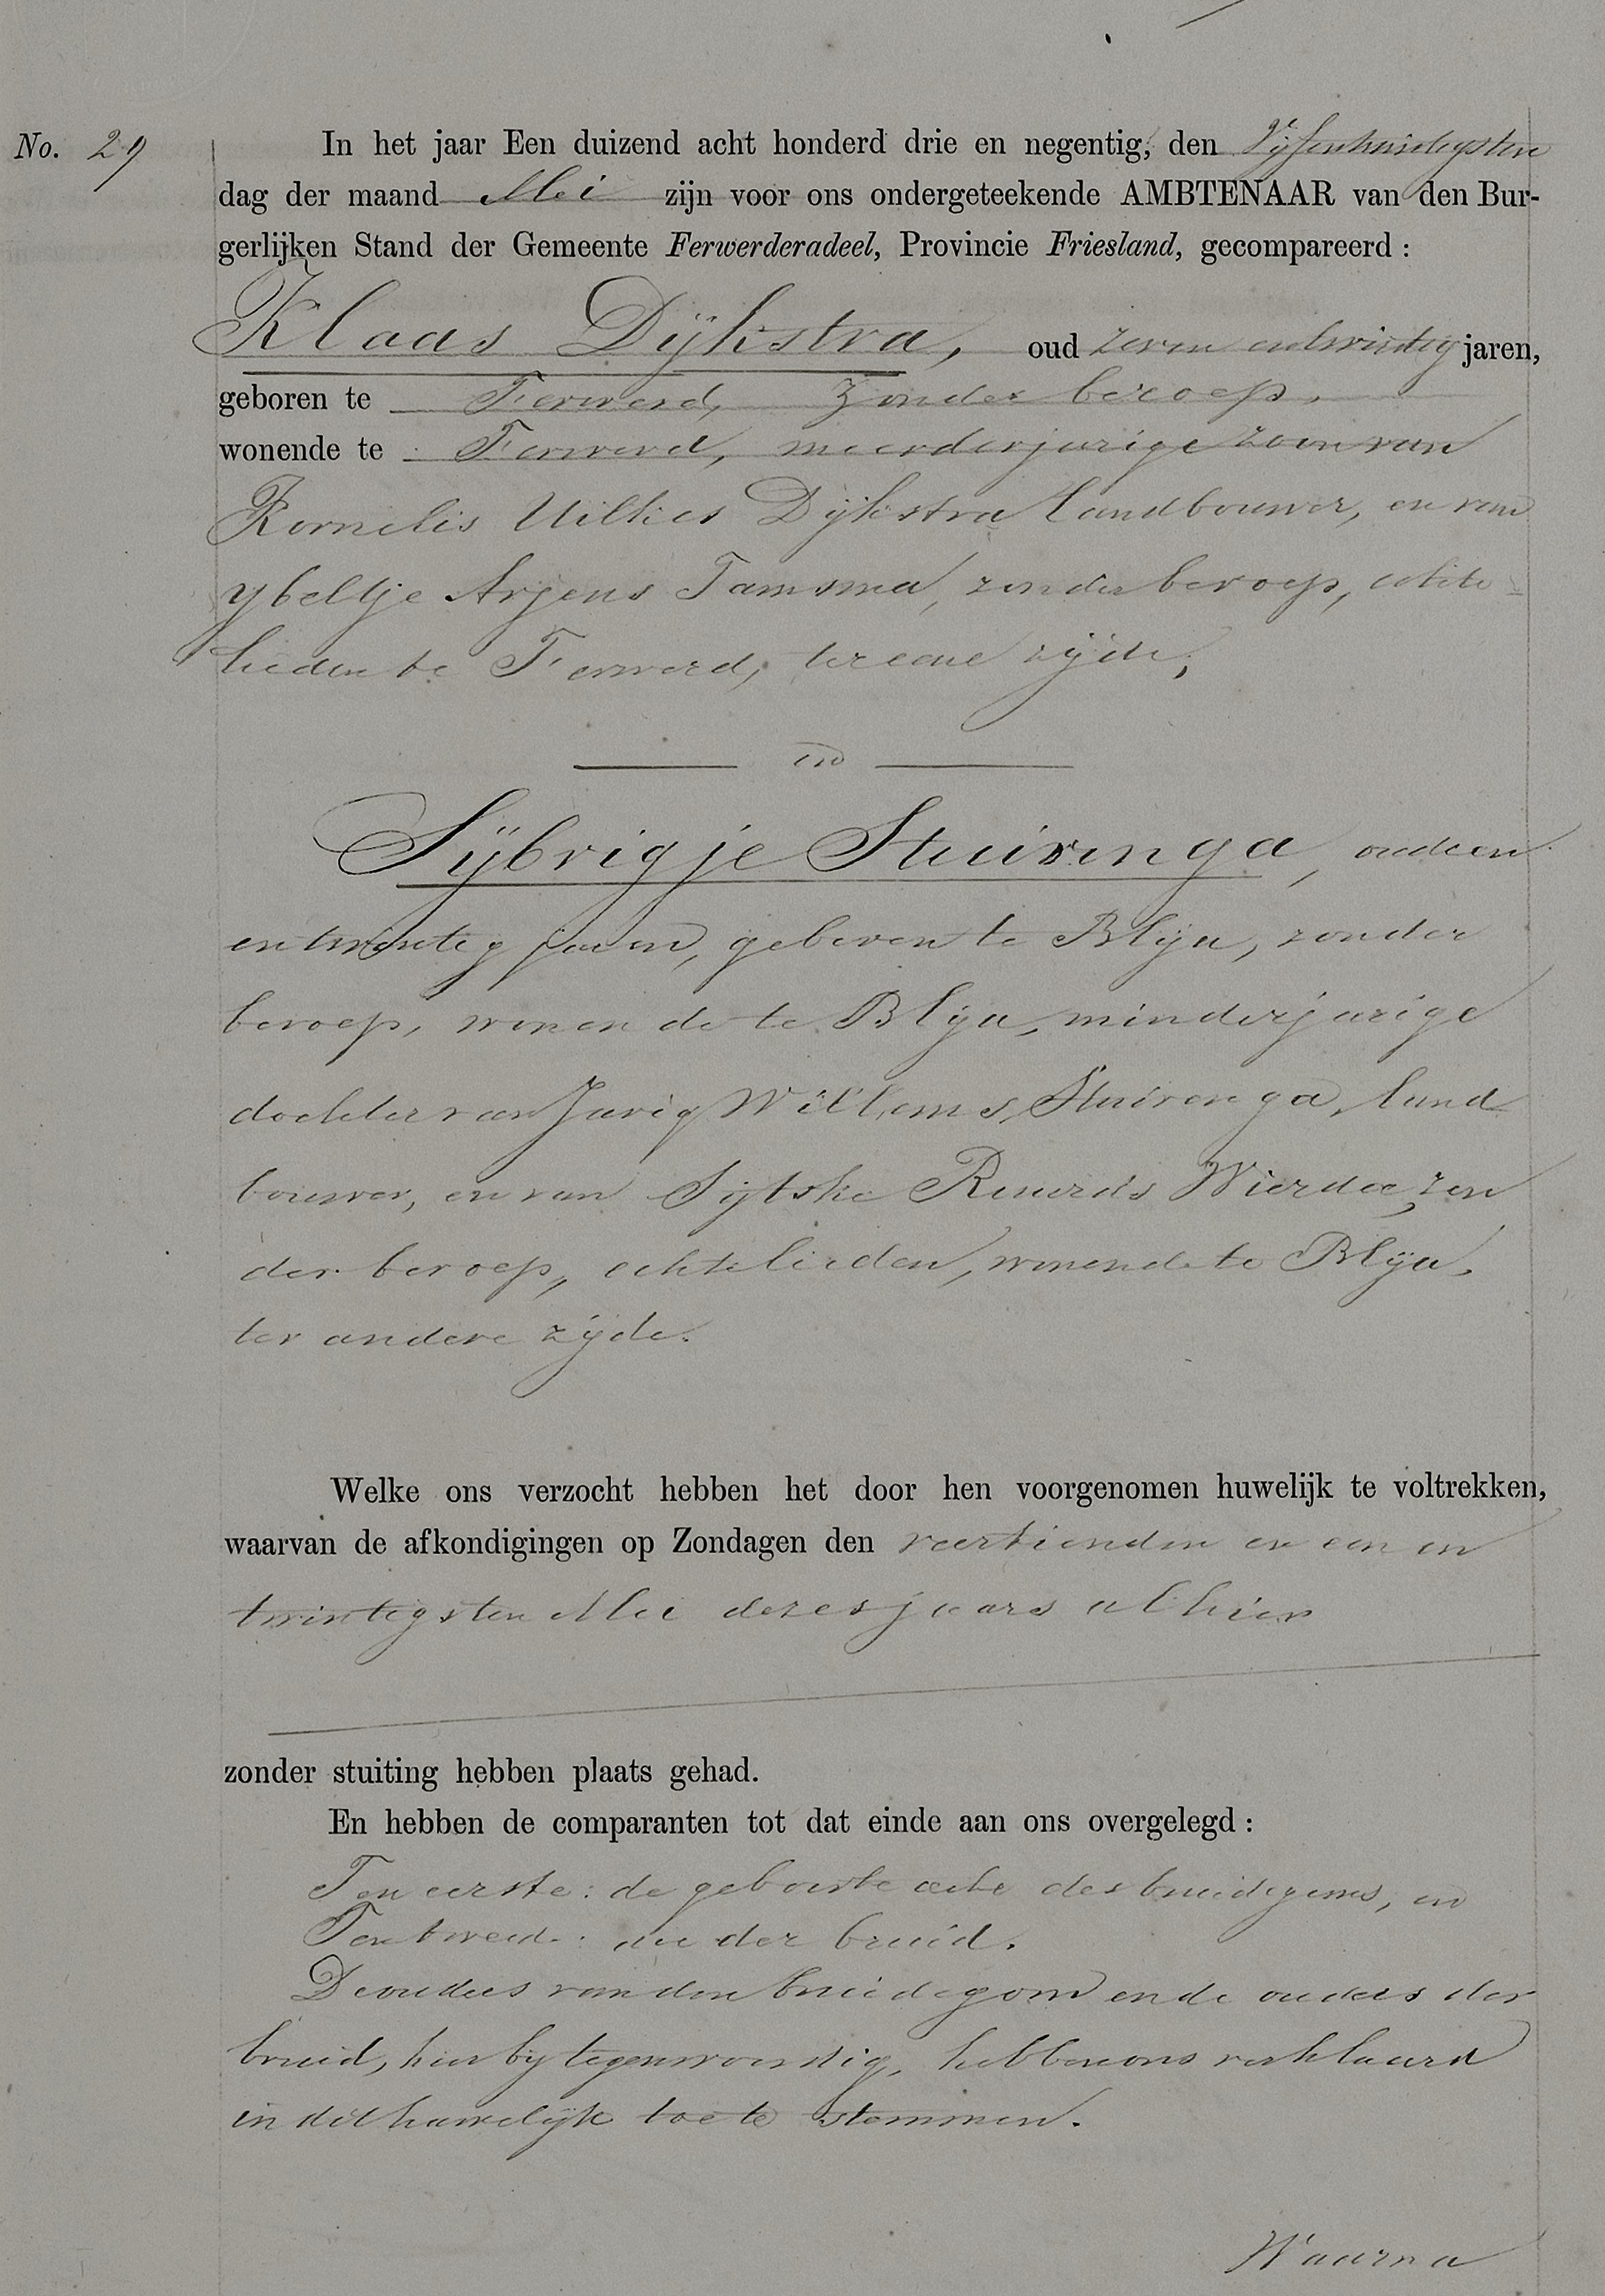 No. 29
In het jaar Een duizend acht honderd drie en negentig, den Vijfentwintigsten
dag der maand Mei zijn voor ons ondergeteekende AMBTENAAR van den Bur-
gerlijken Stand der Gemeente Ferwerderadeel, Provincie Friesland, gecompareerd :
Klaas Dijkstra, oud zeven entwintig jaren,
geboren te Ferwerd, zonder beroep,
wonende te Ferwerd, meerderjarige zoon van
Kornelis Uilkes Dijkstra landbouwer, en van
Ybeltje Arjens Tamsma, zonder beroep, echte-
lieden te Ferwerd, ter eene zijde,
en
Sijbrigje Stuivenga, oud een
entwintig jaren, geboren te Blija, zonder
beroep, wonende te Blija, minderjarige
dochter van Jarig Willems Stuivenga, land
bouwer, en van Sijtske Ruurds Wierda, zon
der beroep, echtelieden, wonende te Blija,
ter andere zijde.
Welke ons verzocht hebben het door hen voorgenomen huwelijk te voltrekken,
waarvan de afkondigingen op Zondagen den veertienden en een en
twintigsten Mei dezes jaars alhier
zonder stuiting hebben plaats gehad.
En hebben de comparanten tot dat einde aan ons overgelegd :
Ten eerste : de geboorte acte des bruidegoms, en
Ten tweede : die der bruid.
De ouders van den bruidegom en de ouders der
bruid, hier bij tegenwoordig, hebben ons verklaard
in dit huwelijk toe te stemmen.
Waarna